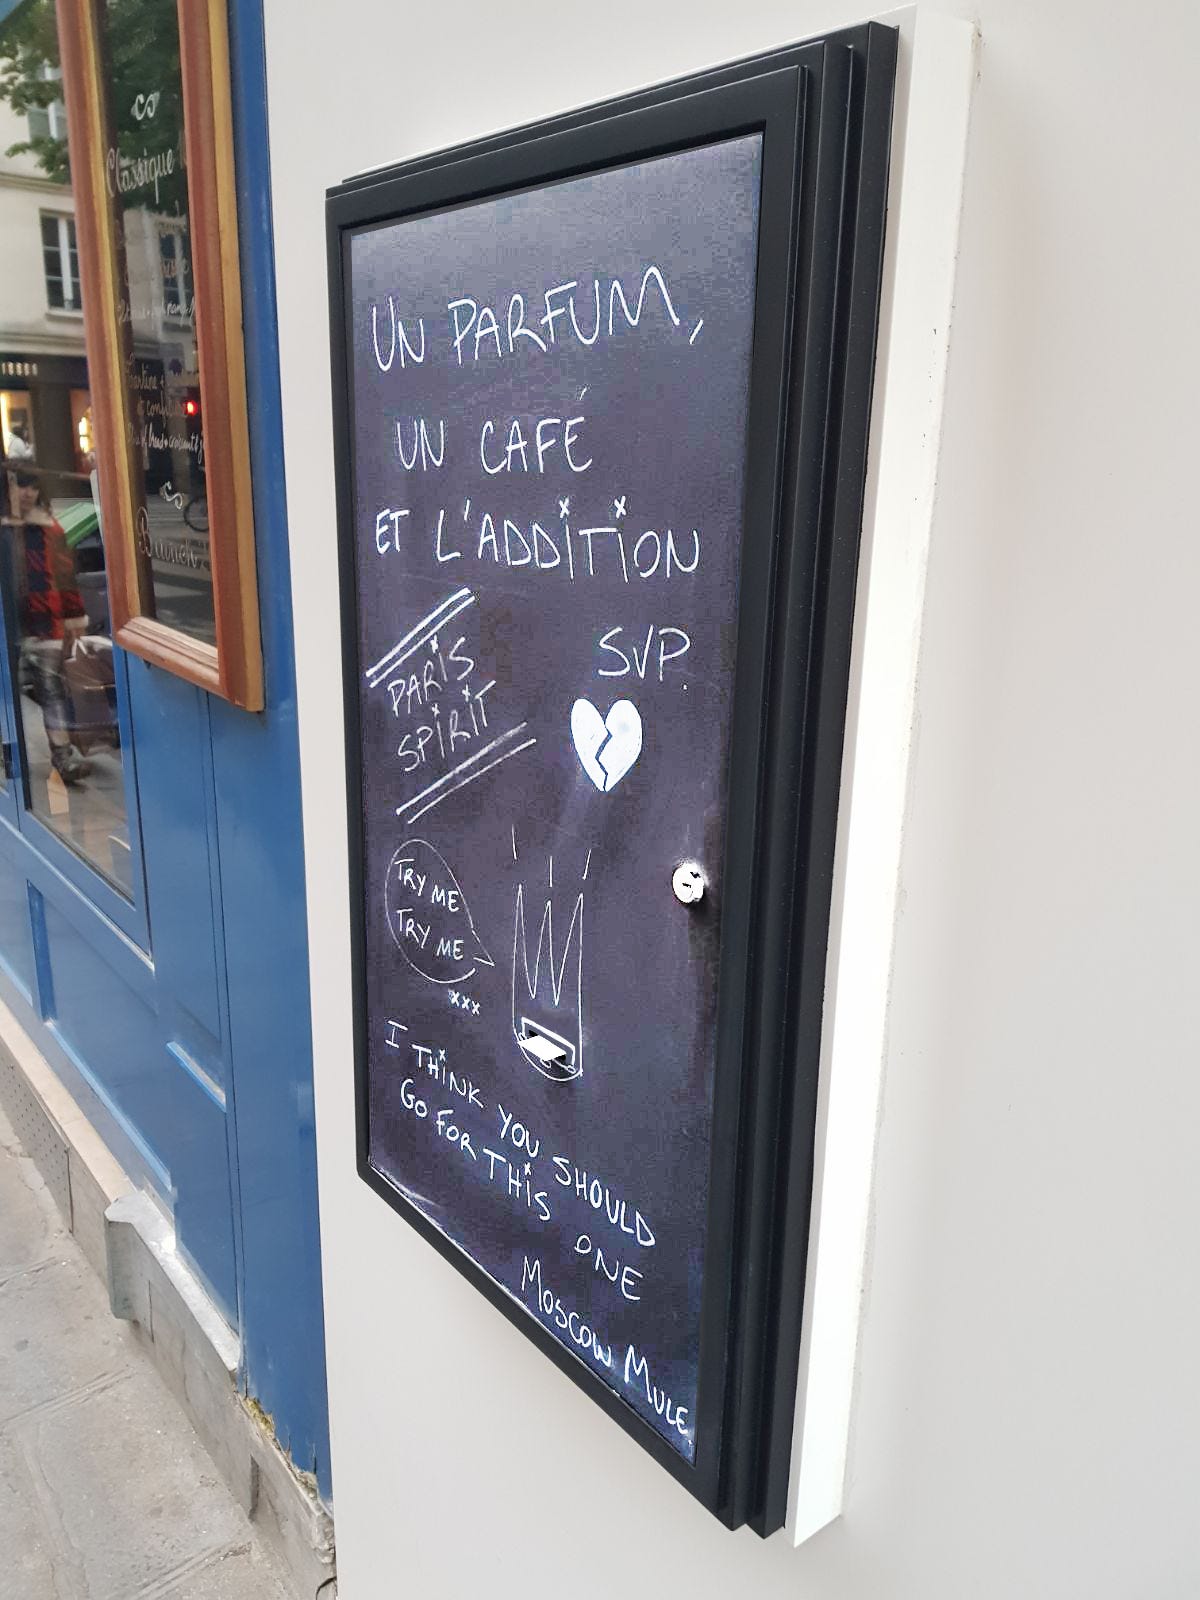 Classique
Tartine +
et confiture
Brunch
UN PARFUM,
UN CAFÉ
ET L'ADDITION
SVP.
PARIS
SPIRIT
TRY ME
TRY ME
xxx
I THINK YOU SHOULD
GO FOR THIS ONE
MOSCOW MULE.